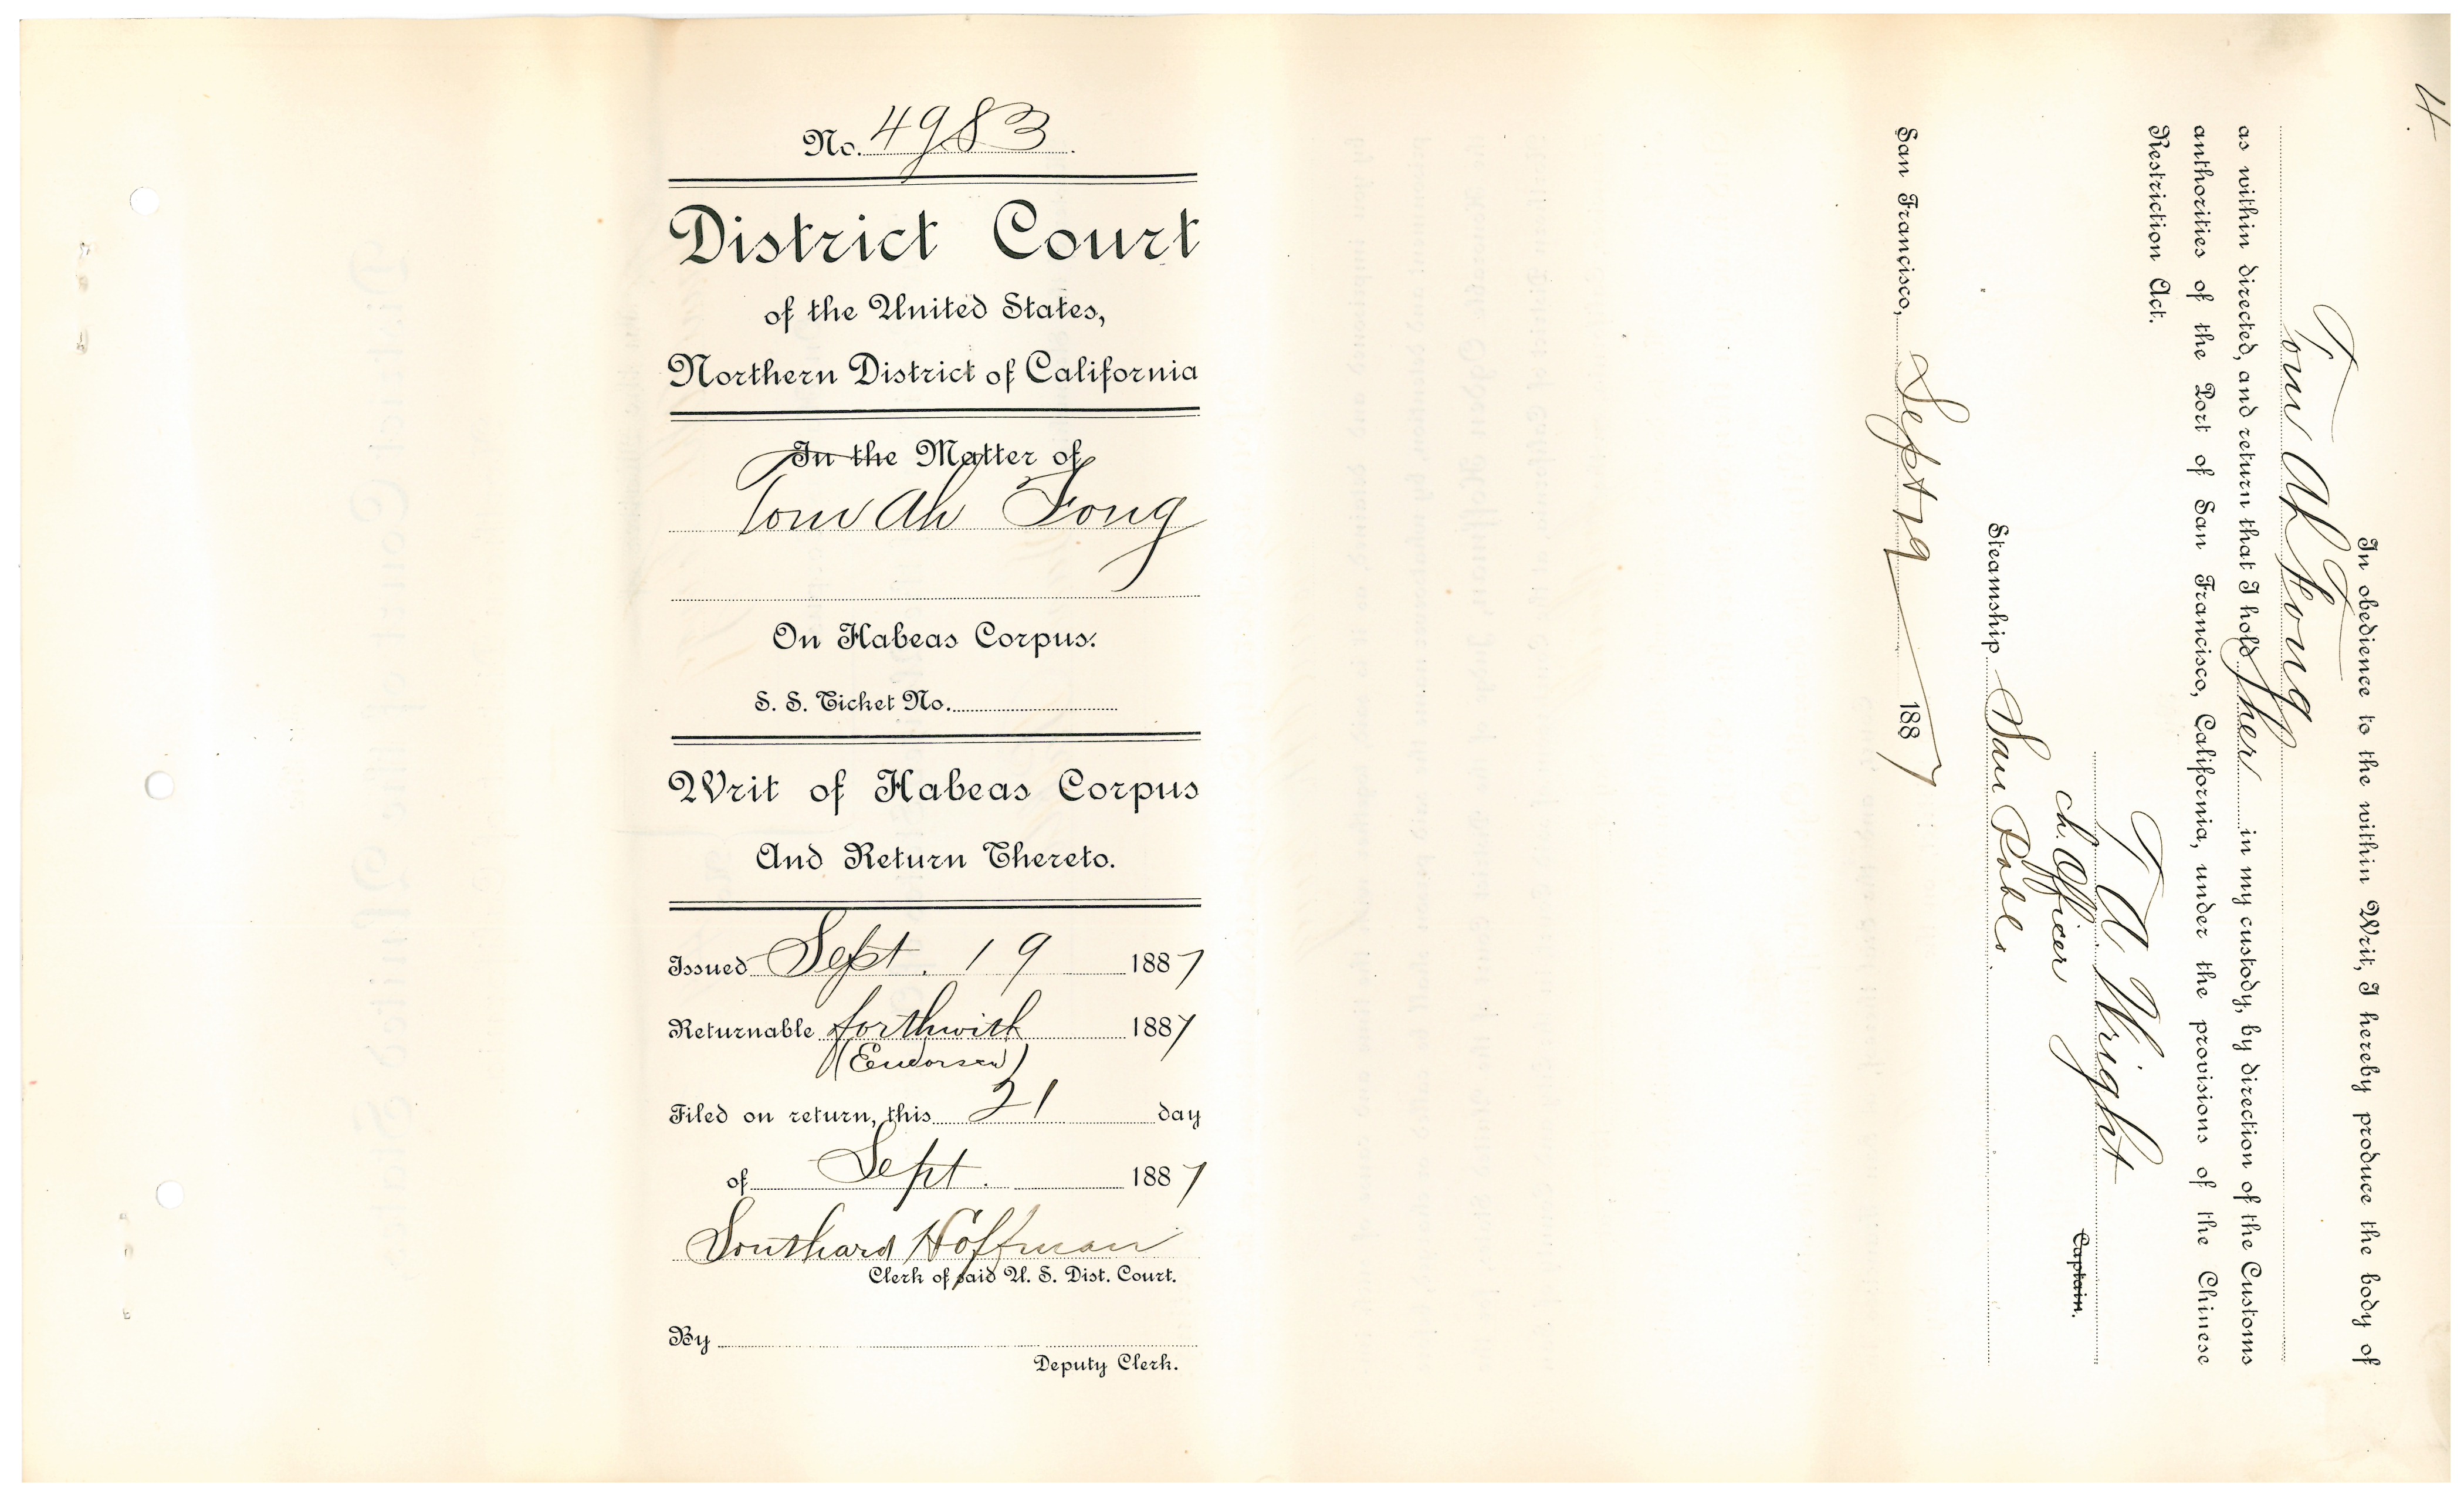 No. 4983
District Court
of the United States,
Northern District of California
In the Matter of
Tom Ah Fong
On Habeas Corpus.
S. S. Ticket No.
Writ of Habeas Corpus
And Return Thereto.
Issued Sept. 19 1887
Returnable forthwith 1887
(Endorsed)
Filed on return, this 21 day
of Sept. 1887
Southard Hoffman
Clerk of said U. S. Dist. Court.
By
Deputy Clerk.
4.
In obedience to the within Writ, I hereby produce the body of
Tom Ah Fong
as within directed, and return that I hold her in my custody, by direction of the Customs
authorities of the Port of San Francisco, California, under the provisions of the Chinese
Restriction Act.
Wright
Captain.
Ch. Officer
Steamship San Pablo.
San Francisco, Sept 19 1887